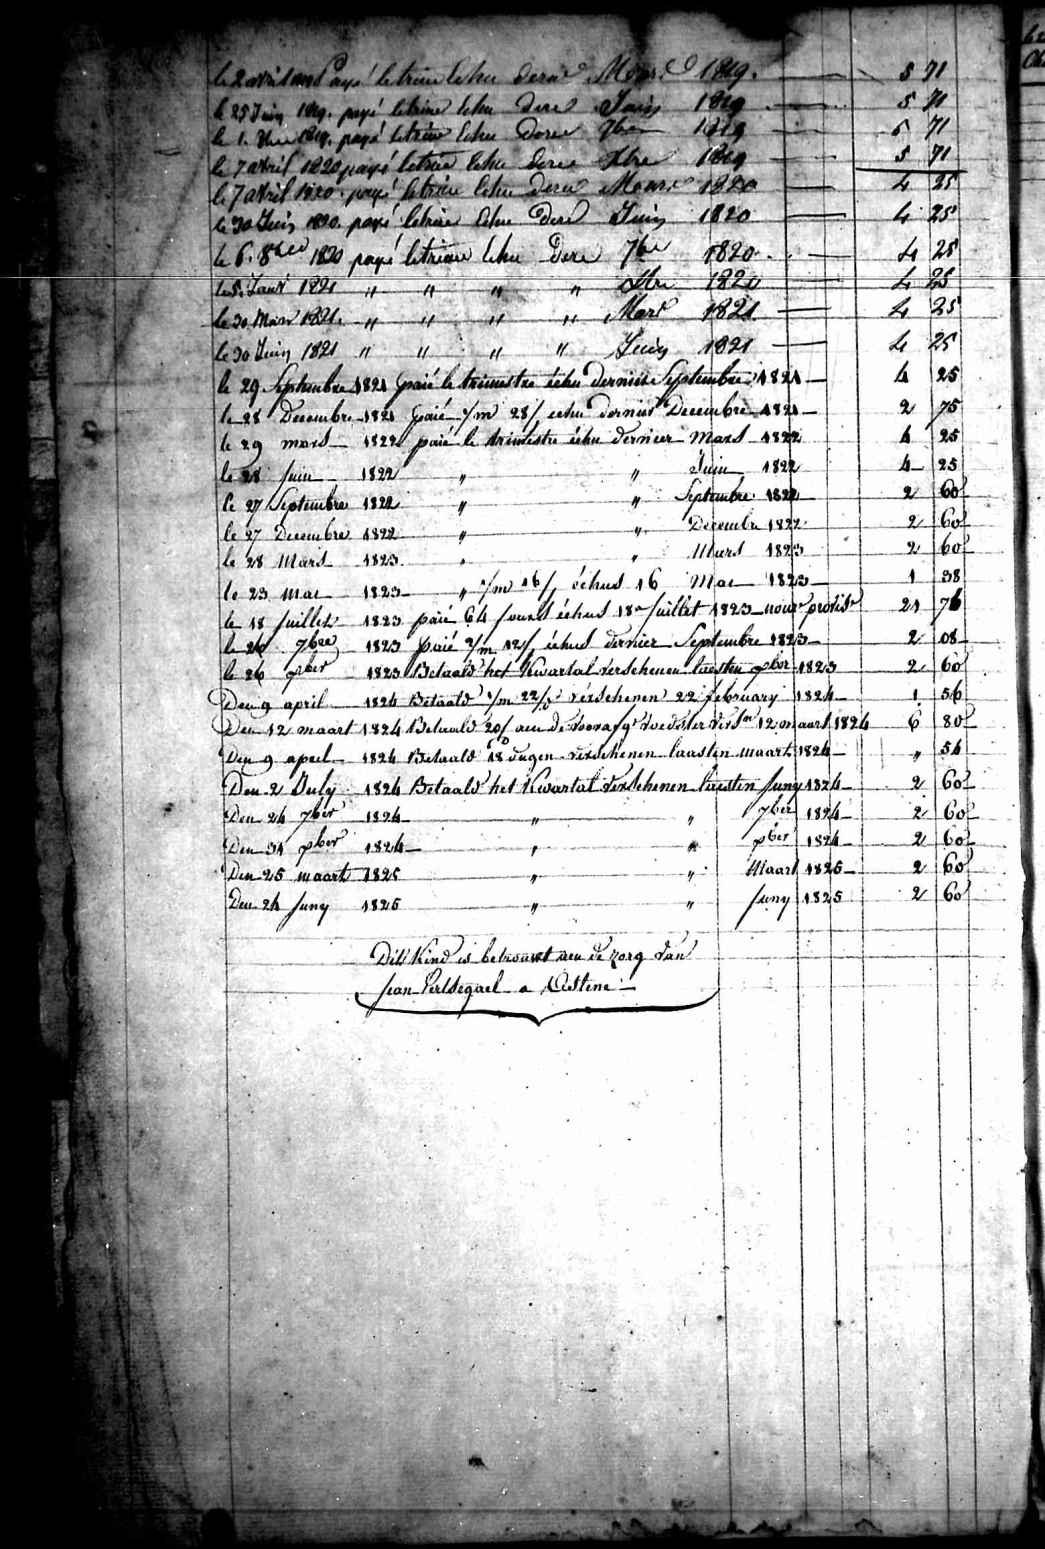 le 2 avril Payé le trim echu dern Mars 1819. — 5 71
le 25 Juin 1819. payé le trim echu dern Juin 1819 — 5 71
le 1. 1819. payé le trim echu dern 7bre 1819 5 71
le 7 avril 1820 payé le trim echu dern Xbre 1819 5 71
le 7 avril 1820. payé le trim echu dern Mars 1820 — 4 25
le 30 Juin 1820. payé le trim echu dern Juin 1820 — 4 25
le 6. 8bre 1820 payé le trim echu dern 7bre 1820 — 4 25
le 5. Janv 1821 " " " " Xbre 1820 — 4 25
le 30 Mars 1821. " " " " Mars 1821 — 4 25
le 30 Juin 1821 " " " " Juin 1821 — 4 25
le 29 Septembre 1821 paié le trimestre échu dernier Septembre 1821 — 4 25
le 28 Decembre 1821 paié 2/m 28/ echu dernier Decembre 1821 — 2 75
le 29 mars 1822 paié le trimestre échu dernier Mars 1822 4 25
le 28 Juin 1822 " " Juin 1822 4 25
le 27 Septembre 1822 " " Septembre 1822 2 60
le 27 Decembre 1822 " " Decembre 1822 2 60
le 28 Mars 1823 " " Mars 1823 2 60
le 23 mai 1823 — " 1/m 16/ échus 16 Mai 1823 — 1 38
le 18 Juillet 1823 paié 64 jours échus 18 Juillet 1823 — 21 76
le 26 7bre 1823 paié 2/m 12/ échus dernier Septembre 1823 — 2 08
le 26 xber 1823 Betaald het Kwartal verschenen laesten xber 1823 2 60
Den 9 april 1824 Betaald 1/m 22/ verschenen 22 february 1824 — 1 56
Den 12 maart 1824 Betaald 20/ aen de voedster 12 maart 1824 6 80
Den 9 april 1824 Betaald 18 dagen verschenen laasten maart 1824 — " 54
Den 2 July 1824 Betaald het Kwartal verschenen laesten Juny 1824 — 2 60
Den 24 7ber 1824 — " " 7ber 1824 — 2 60
Den 31 xber 1824 — " " xber 1824 — 2 60
Den 25 maart 1825 " " Maart 1825 — 2 60
Den 24 Juny 1825 " " Juny 1825 2 60
Dit Kind is betrouwt aen de zorg van
Jean a